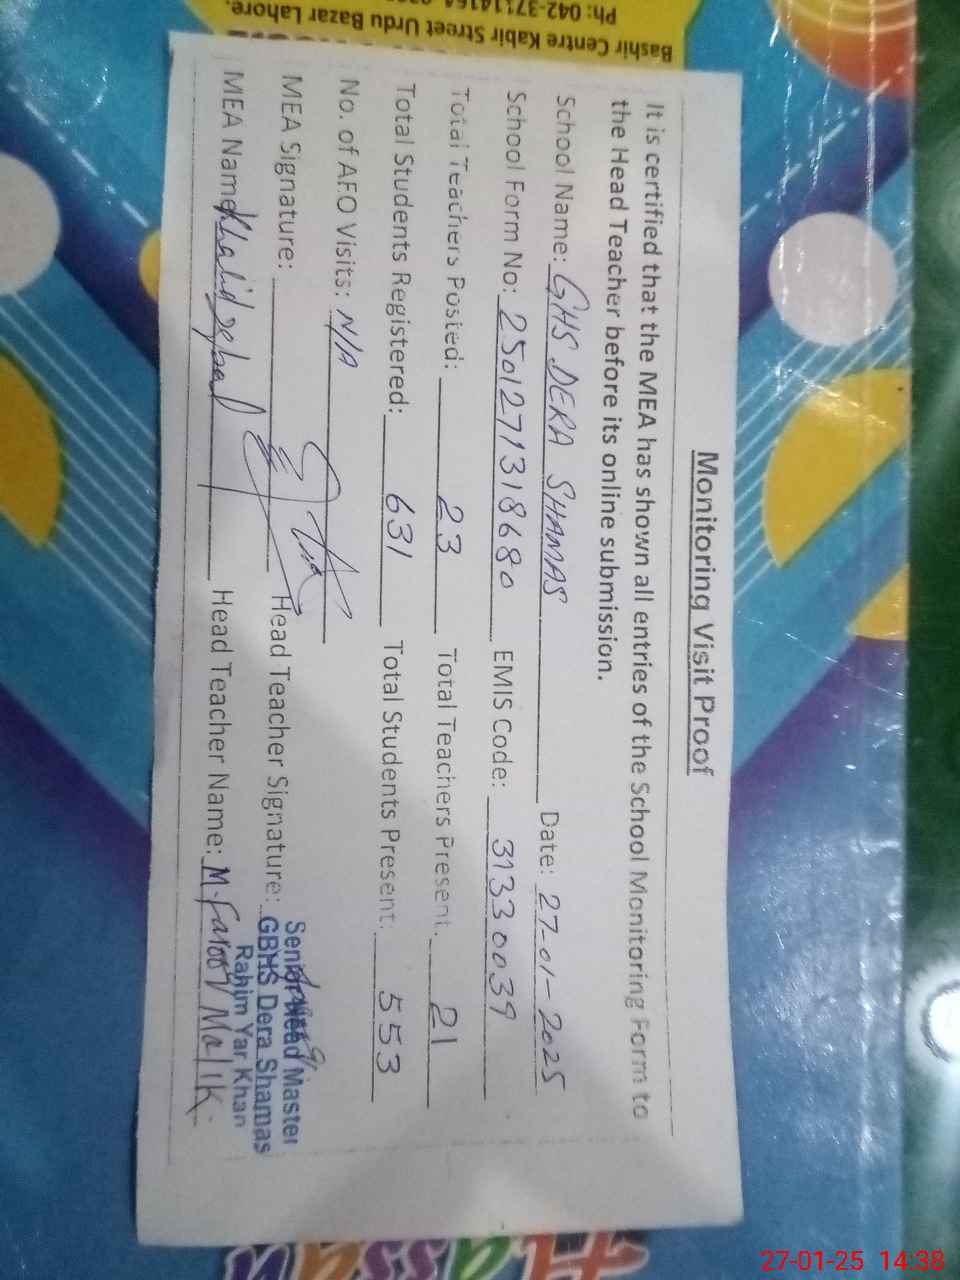 Monitoring Visit Proof
It is certified that the MEA has shown all entries of the School Monitoring Form to
the Head Teacher before its online submission.
School Name: GHS DERA SHAMAS Date: 27-01-2025
School Form No: 2501271318680 EMIS Code: 31330039
Total Teachers Posted: 23 Total Teachers Present: 21
Total Students Registered: 631 Total Students Present: 553
No. of AEO Visits: N/A
MEA Signature: Head Teacher Signature:
MEA Name: Khalid Head Teacher Name: M. Farooq Malik
Senior Head Master
GBHS Dera Shamas
Rahim Yar Khan
Bashir Centre Kabir Street Urdu Bazar Lahore.
Ph: 042-37114164
27-01-25 14:38